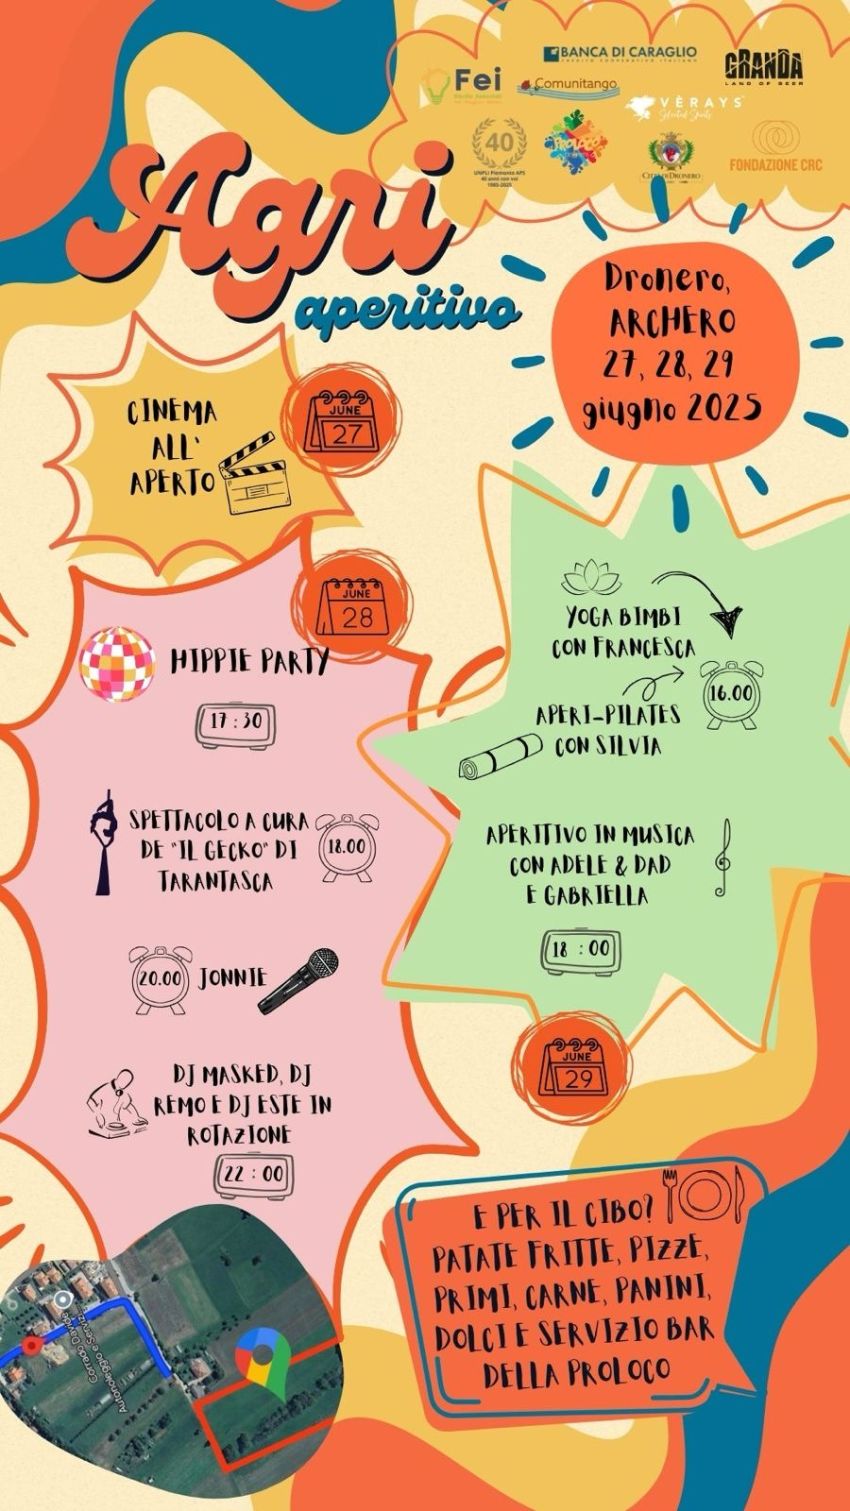 Fei
BANCA DI CARAGLIO
CREDITO COOPERATIVO ITALIANO
GRANDA
LAND OF BEER
Comunitango
VÈRAYS
Selected Spirits
40
UNPLI Piemonte APS
40 anni con voi
1985-2025
PROLOCO
CITTÀ DI DRONERO
FONDAZIONE CRC
Agri
aperitivo
Dronero,
ARCHERO
27, 28, 29
giugno 2025
CINEMA
ALL'
APERTO
JUNE
27
JUNE
28
HIPPIE PARTY
17:30
SPETTACOLO A CURA
DE "IL GECKO" DI
TARANTASCA
18.00
20.00 JONNIE
DJ MASKED, DJ
REMO E DJ ESTE IN
ROTAZIONE
22:00
YOGA BIMBI
CON FRANCESCA
16.00
APERI-PILATES
CON SILVIA
APERITIVO IN MUSICA
CON ADELE & DAD
E GABRIELLA
18:00
JUNE
29
E PER IL CIBO?
PATATE FRITTE, PIZZE,
PRIMI, CARNE, PANINI,
DOLCI E SERVIZIO BAR
DELLA PROLOCO
Corrado Davide
Autonoleggio e Serviz...